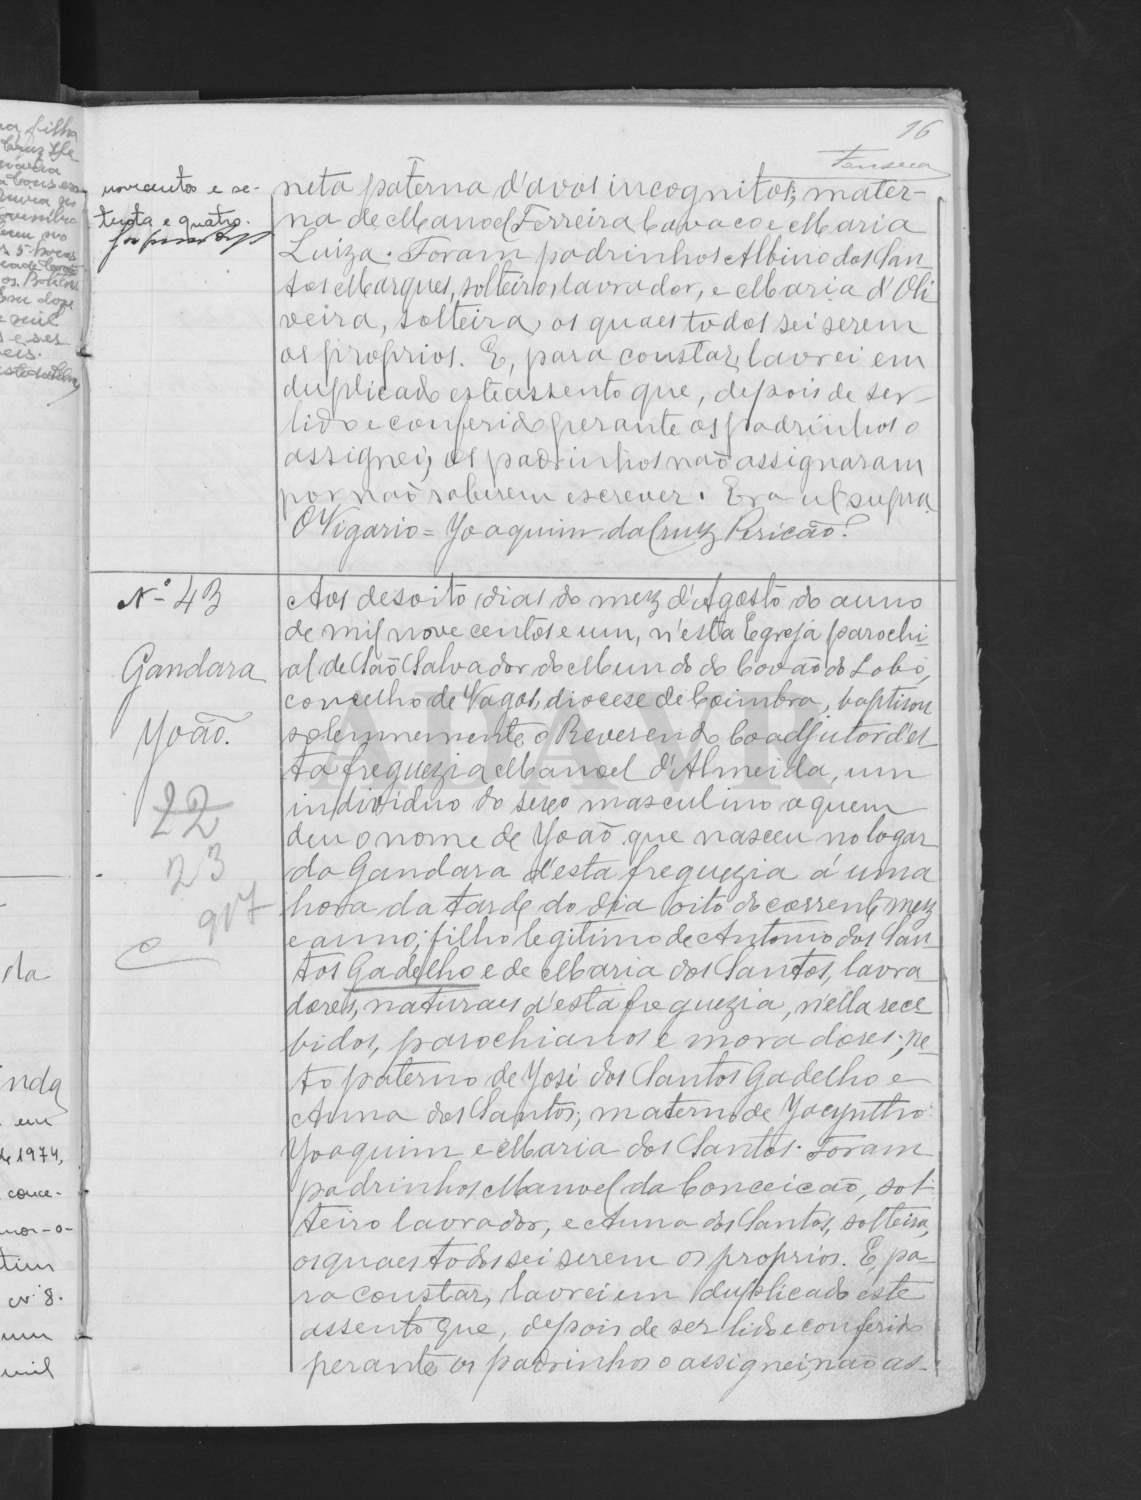 16
Fonseca
novecentos e se-
tenta e quatro.
neta paterna d'avos incognitos; mater-
na de Manoel Ferreira Cavaco e Maria
Luiza. Foram padrinhos Albino dos San-
tos Marques, solteiro lavrador, e Maria d'Oli
veira, solteira, os quaes todos sei serem
os proprios. E, para constar, lavrei em
duplicado este assento que, depois de ser
lido e conferido perante os padrinhos o
assignei; os padrinhos não assignaram
por não saberem escrever. Era ut supra.
O Vigario = Joaquim da Cruz Pericão.
Nº 43
Gandara
João.
22
23
917
Aos desoito dias do mez d'Agosto do anno
de mil nove centos e um, n'esta Egreja parochi-
al de São Salvador do Mundo do Covão do Lobo,
concelho de Vagos, diocese de Coimbra, baptisou
solemnemente o Reverendo Coadjutor d'es-
ta freguezia Manoel d'Almeida, um
individuo do sexo masculino a quem
deu o nome de João que nasceu no logar
da Gandara d'esta freguezia á uma
hora da tarde do dia oito do corrente mez
e anno; filho legitimo de Antonio dos San-
tos Gadelho e de Maria dos Santos, lavra-
dores, naturaes d'esta freguezia, n'ella rece-
bidos, parochianos e moradores; ne-
to paterno de José dos Santos Gadelho e
Anna dos Santos; materno de Jacyntho
Joaquim e Maria dos Santos. Foram
padrinhos Manoel da Conceicão, sol-
teiro lavrador, e Anna dos Santos, solteira,
os quaes todos sei serem os proprios. E, pa-
ra constar, lavrei em duplicado este
assento que, depois de ser lido e conferido
perante os padrinhos o assignei, não as-
ADAVR
de 1974,
conce-
nº 8.
mil